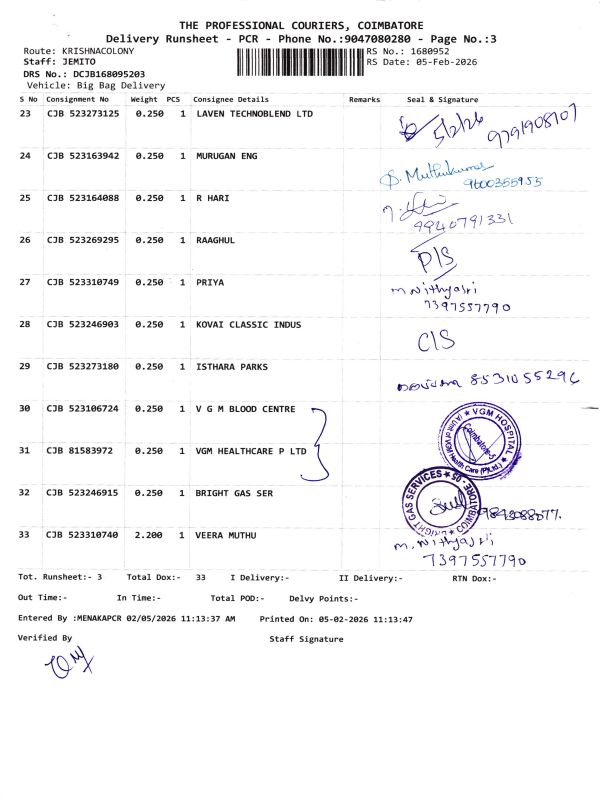 THE PROFESSIONAL COURIERS, COIMBATORE
Delivery Runsheet - PCR - Phone No.:9047080280 - Page No.:3
Route: KRISHNACOLONY RS No.: 1680952
Staff: JEMITO RS Date: 05-Feb-2026
DRS No.: DCJB168095203
Vehicle: Big Bag Delivery
S No Consignment No Weight PCS Consignee Details Remarks Seal & Signature
23 CJB 523273125 0.250 1 LAVEN TECHNOBLEND LTD 5/2/26 9791908707
24 CJB 523163942 0.250 1 MURUGAN ENG S. Muthukumar 9600355955
25 CJB 523164088 0.250 1 R HARI 9940791331
26 CJB 523269295 0.250 1 RAAGHUL P/S
27 CJB 523310749 0.250 1 PRIYA M. Nithyasri
7397557790
28 CJB 523246903 0.250 1 KOVAI CLASSIC INDUS C/S
29 CJB 523273180 0.250 1 ISTHARA PARKS 8531055296
30 CJB 523106724 0.250 1 V G M BLOOD CENTRE
VGM HOSPITAL
31 CJB 81583972 0.250 1 VGM HEALTHCARE P LTD
Health Care (P) Ltd.
32 CJB 523246915 0.250 1 BRIGHT GAS SER
BRIGHT GAS SERVICES COIMBATORE-05 9843088077.
33 CJB 523310740 2.200 1 VEERA MUTHU M. Nithyasri
7397557790
Tot. Runsheet:- 3 Total Dox:- 33 I Delivery:- II Delivery:- RTN Dox:-
Out Time:- In Time:- Total POD:- Delvy Points:-
Entered By :MENAKAPCR 02/05/2026 11:13:37 AM Printed On: 05-02-2026 11:13:47
Verified By Staff Signature